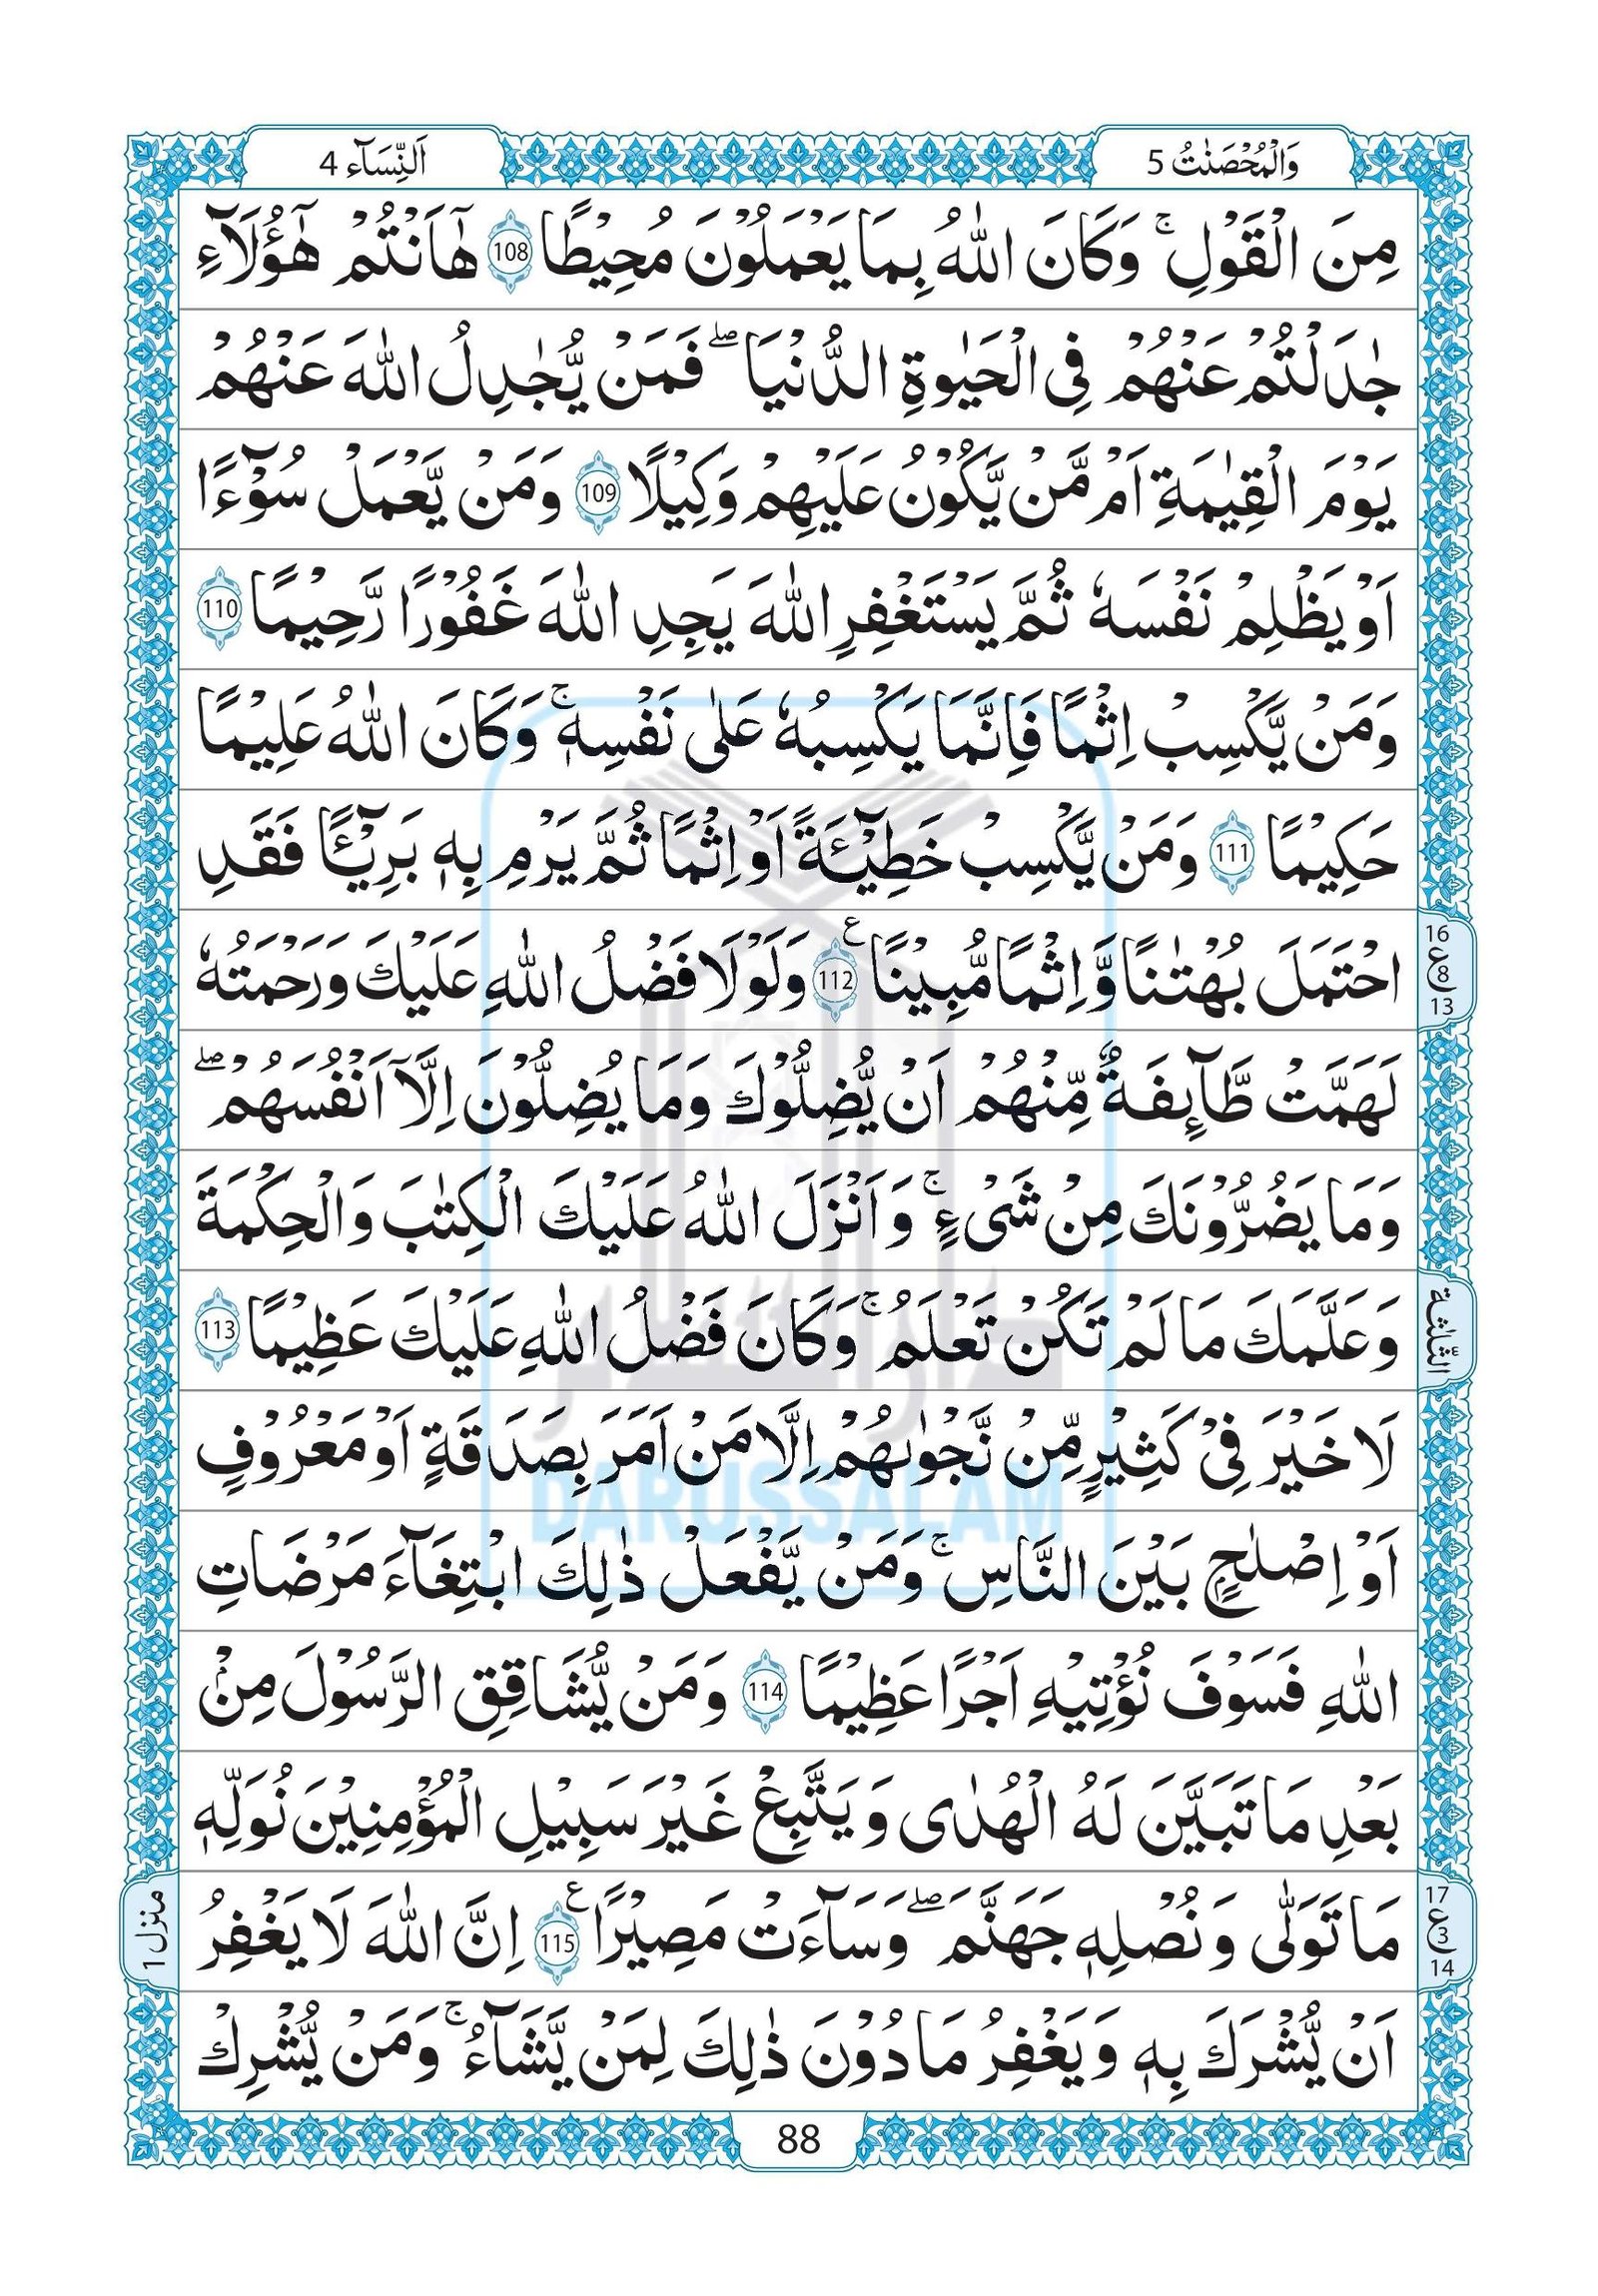 وَالْمُحْصَنٰتُ 5
اَلنِّسَآء 4
مِنَ الْقَوْلِ ۚ وَكَانَ اللّٰهُ بِمَا يَعْمَلُوْنَ مُحِيْطًا 108 هٰٓاَنْتُمْ هٰٓؤُلَآءِ
جٰدَلْتُمْ عَنْهُمْ فِى الْحَيٰوةِ الدُّنْيَا ۖ فَمَنْ يُّجٰدِلُ اللّٰهَ عَنْهُمْ
يَوْمَ الْقِيٰمَةِ اَمْ مَّنْ يَّكُوْنُ عَلَيْهِمْ وَكِيْلًا 109 وَمَنْ يَّعْمَلْ سُوْٓءًا
اَوْ يَظْلِمْ نَفْسَهٗ ثُمَّ يَسْتَغْفِرِ اللّٰهَ يَجِدِ اللّٰهَ غَفُوْرًا رَّحِيْمًا 110
وَمَنْ يَّكْسِبْ اِثْمًا فَاِنَّمَا يَكْسِبُهٗ عَلٰى نَفْسِهٖ ۚ وَكَانَ اللّٰهُ عَلِيْمًا
حَكِيْمًا 111 وَمَنْ يَّكْسِبْ خَطِيْٓئَةً اَوْ اِثْمًا ثُمَّ يَرْمِ بِهٖ بَرِيْٓـًٔا فَقَدِ
احْتَمَلَ بُهْتٰنًا وَّاِثْمًا مُّبِيْنًا 112 ع وَلَوْلَا فَضْلُ اللّٰهِ عَلَيْكَ وَرَحْمَتُهٗ
16
ع 8
13
لَهَمَّتْ طَّآئِفَةٌ مِّنْهُمْ اَنْ يُّضِلُّوْكَ وَمَا يُضِلُّوْنَ اِلَّآ اَنْفُسَهُمْ ۖ
وَمَا يَضُرُّوْنَكَ مِنْ شَىْءٍ ۚ وَاَنْزَلَ اللّٰهُ عَلَيْكَ الْكِتٰبَ وَالْحِكْمَةَ
وَعَلَّمَكَ مَا لَمْ تَكُنْ تَعْلَمُ ۚ وَكَانَ فَضْلُ اللّٰهِ عَلَيْكَ عَظِيْمًا 113
الثّلٰثة
لَا خَيْرَ فِىْ كَثِيْرٍ مِّنْ نَّجْوٰىهُمْ اِلَّا مَنْ اَمَرَ بِصَدَقَةٍ اَوْ مَعْرُوْفٍ
DARUSSALAM
اَوْ اِصْلٰحٍ بَيْنَ النَّاسِ ۚ وَمَنْ يَّفْعَلْ ذٰلِكَ ابْتِغَآءَ مَرْضَاتِ
اللّٰهِ فَسَوْفَ نُؤْتِيْهِ اَجْرًا عَظِيْمًا 114 وَمَنْ يُّشَاقِقِ الرَّسُوْلَ مِنْۢ
بَعْدِ مَا تَبَيَّنَ لَهُ الْهُدٰى وَيَتَّبِعْ غَيْرَ سَبِيْلِ الْمُؤْمِنِيْنَ نُوَلِّهٖ
مَا تَوَلّٰى وَنُصْلِهٖ جَهَنَّمَ ۖ وَسَآءَتْ مَصِيْرًا 115 ع اِنَّ اللّٰهَ لَا يَغْفِرُ
17
ع 3
14
منزل 1
اَنْ يُّشْرَكَ بِهٖ وَيَغْفِرُ مَا دُوْنَ ذٰلِكَ لِمَنْ يَّشَآءُ ۚ وَمَنْ يُّشْرِكْ
88